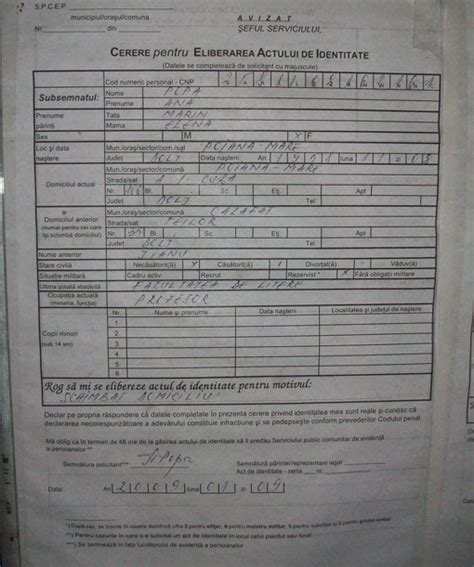 S.P.C.E.P.
municipiul/orașul/comuna
A V I Z A T
Nr. din
ȘEFUL SERVICIULUI,
CERERE pentru ELIBERAREA ACTULUI DE IDENTITATE
(Datele se completează de solicitant cu majuscule)
Subsemnatul:
Cod numeric personal - CNP
Nume POPA
Prenume ANA
Prenume părinți
Tata MARIN
Mama ELENA
Sex M X F
Loc și data naștere
Mun./oraș/sector/com./sat POIANA-MARE
Județ DOLJ Data nașterii: An luna zi
Domiciliul actual
Mun./oraș/sector/comună POIANA-MARE
Strada/sat A. I. CUZA
Nr. Bl. Sc. Etj. Apt
Județ DOLJ Tel
Domiciliul anterior
(numai pentru cei care își schimbă domiciliul)
Mun./oraș/sector/comună CALAFAT
Strada/sat TEILOR
Nr. Bl. Sc. Etj. Apt
Județ DOLJ Tel
Nume anterior JIANU
Stare civilă Necăsătorit(ă) Căsătorit(ă) Divorțat(ă) Văduv(ă)
Situație militară Cadru activ Recrut Rezervist * X Fără obligații militare
Ultima școală absolvită FACULTATEA DE LITERE
Ocupația actuală PROFESOR
(meseria, funcția)
Copii minori
(sub 14 ani)
Nr. Nume și prenume Data nașterii Localitatea și județul de naștere
1.
2.
3.
4.
5.
6.
Rog să mi se elibereze actul de identitate pentru motivul:
SCHIMBAT DOMICILIU
Declar pe propria răspundere că datele completate în prezenta cerere privind identitatea mea sunt reale și cunosc că
declararea necorespunzătoare a adevărului constituie infracțiune și se pedepsește conform prevederilor Codului penal
Mă oblig ca în termen de 48 ore de la găsirea actului de identitate să îl predau Serviciului public comunitar de evidență
a persoanelor **
Semnătura solicitant***
Semnătură părinte/reprezentant legal
Act de identitate - seria nr.
Data: An 2009 luna zi
*) După caz, se înscrie în căsuța destinată cifra 3 pentru ofițer, 4 pentru maistru militar, 5 pentru subofițer și 6 pentru gradat-soldat
**) Pentru cazurile în care s-a solicitat un act de identitate în locul celui pierdut sau furat
***) Se semnează în fața lucrătorului de evidență a persoanelor